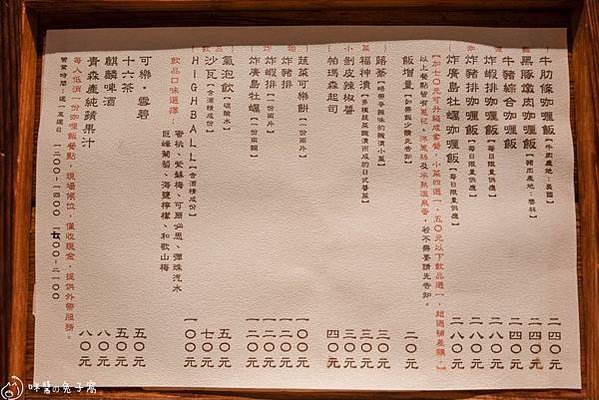 牛肋條咖喱飯【牛肉產地：美國】 二四〇元
黑豚燉肉咖喱飯【豬肉產地：雲林】 二四〇元
牛豬綜合咖喱飯 二四〇元
炸蝦排咖喱飯【每日限量供應】 二八〇元
炸豬排咖喱飯【每日限量供應】 二八〇元
炸廣島牡蠣咖喱飯【每日限量供應】 二八〇元
【加七〇元可升級成套餐，小菜四選一，五〇元以下飲品選一，超過補差額。】
以上餐點皆有蔥花、洋蔥絲及半熟溫泉蛋，若不需要請先告知。
飯增量【如需飯少請先告知】 二〇元
路蕎【略帶辛辣味的醃漬小菜】 三〇元
福神漬【多種蔬菜醃漬而成的日式醬菜】 三〇元
剝皮辣椒醬 三〇元
帕瑪森起司 四〇元
蔬菜可樂餅【一份兩片】 一〇〇元
炸豬排 一〇〇元
炸蝦排【一份兩片】 一二〇元
炸廣島牡蠣【一份兩顆】 一二〇元
氣泡飲【碳酸水】 五〇元
沙瓦【含酒精成份】 七〇元
HIGHBALL【含酒精成份】 一〇〇元
飲品口味選擇： 蜜桃、紫蘇梅、可爾必思、彈珠汽水
巨峰葡萄、海鹽檸檬、和歌山梅
可樂・雪碧 五〇元
十六茶 五〇元
麒麟啤酒 八〇元
青森產純蘋果汁 八〇元
每人低消一份咖喱飯餐點，現場候位，僅收現金，提供外帶服務。
營業時間：週一至週日 一二〇〇-一四〇〇 一七〇〇-二一〇〇
咪醬の兔子窩